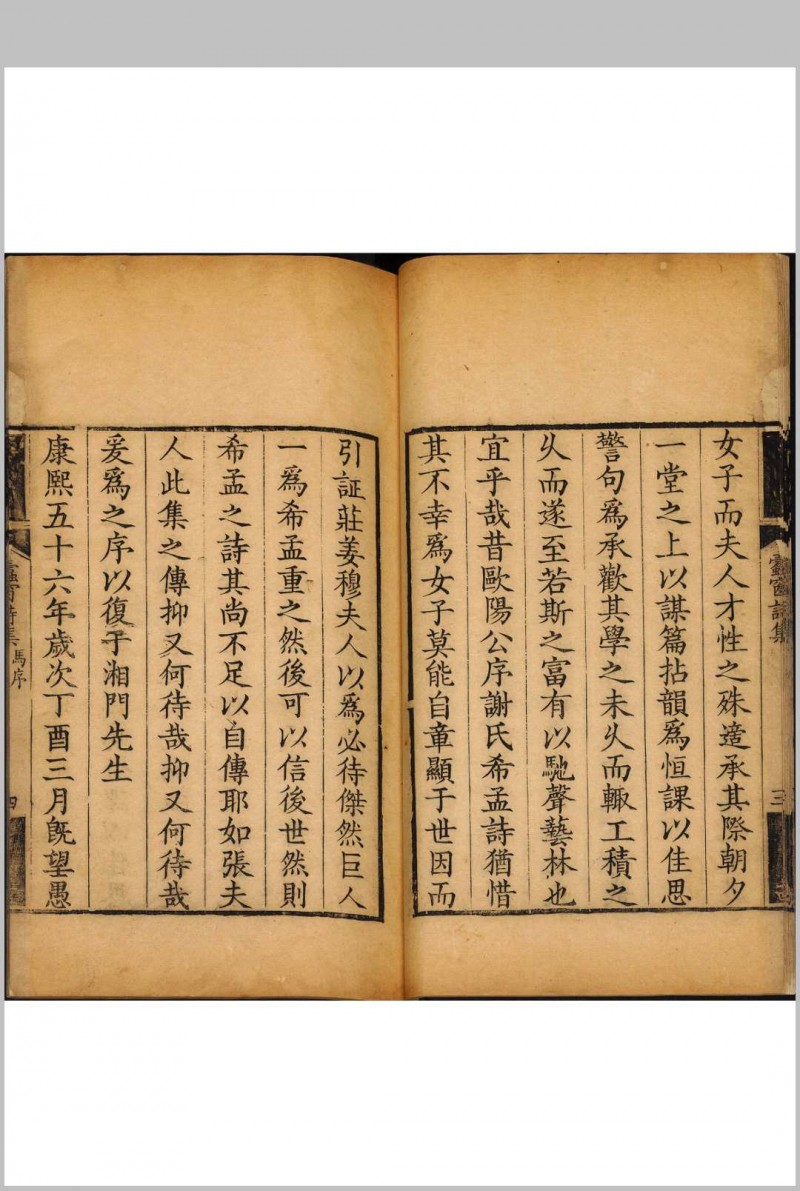 女子而夫人才性之殊遭承其際朝夕
一堂之上以謀篇拈韻爲恒課以佳思
警句爲承歡其學之未乆而輙工積之
乆而遂至若斯之富有以馳聲藝林也
宜乎哉昔歐陽公序謝氏希孟詩猶惜
其不幸爲女子莫能自章顯于世因而
引証莊姜穆夫人以爲必待傑然巨人
一爲希孟重之然後可以信後世然則
希孟之詩其尚不足以自傳耶如張夫
人此集之傳抑又何待哉抑又何待哉
爰爲之序以復于湘門先生
康熙五十六年歲次丁酉三月旣望愚
詩集
三
詩集 馬序
四